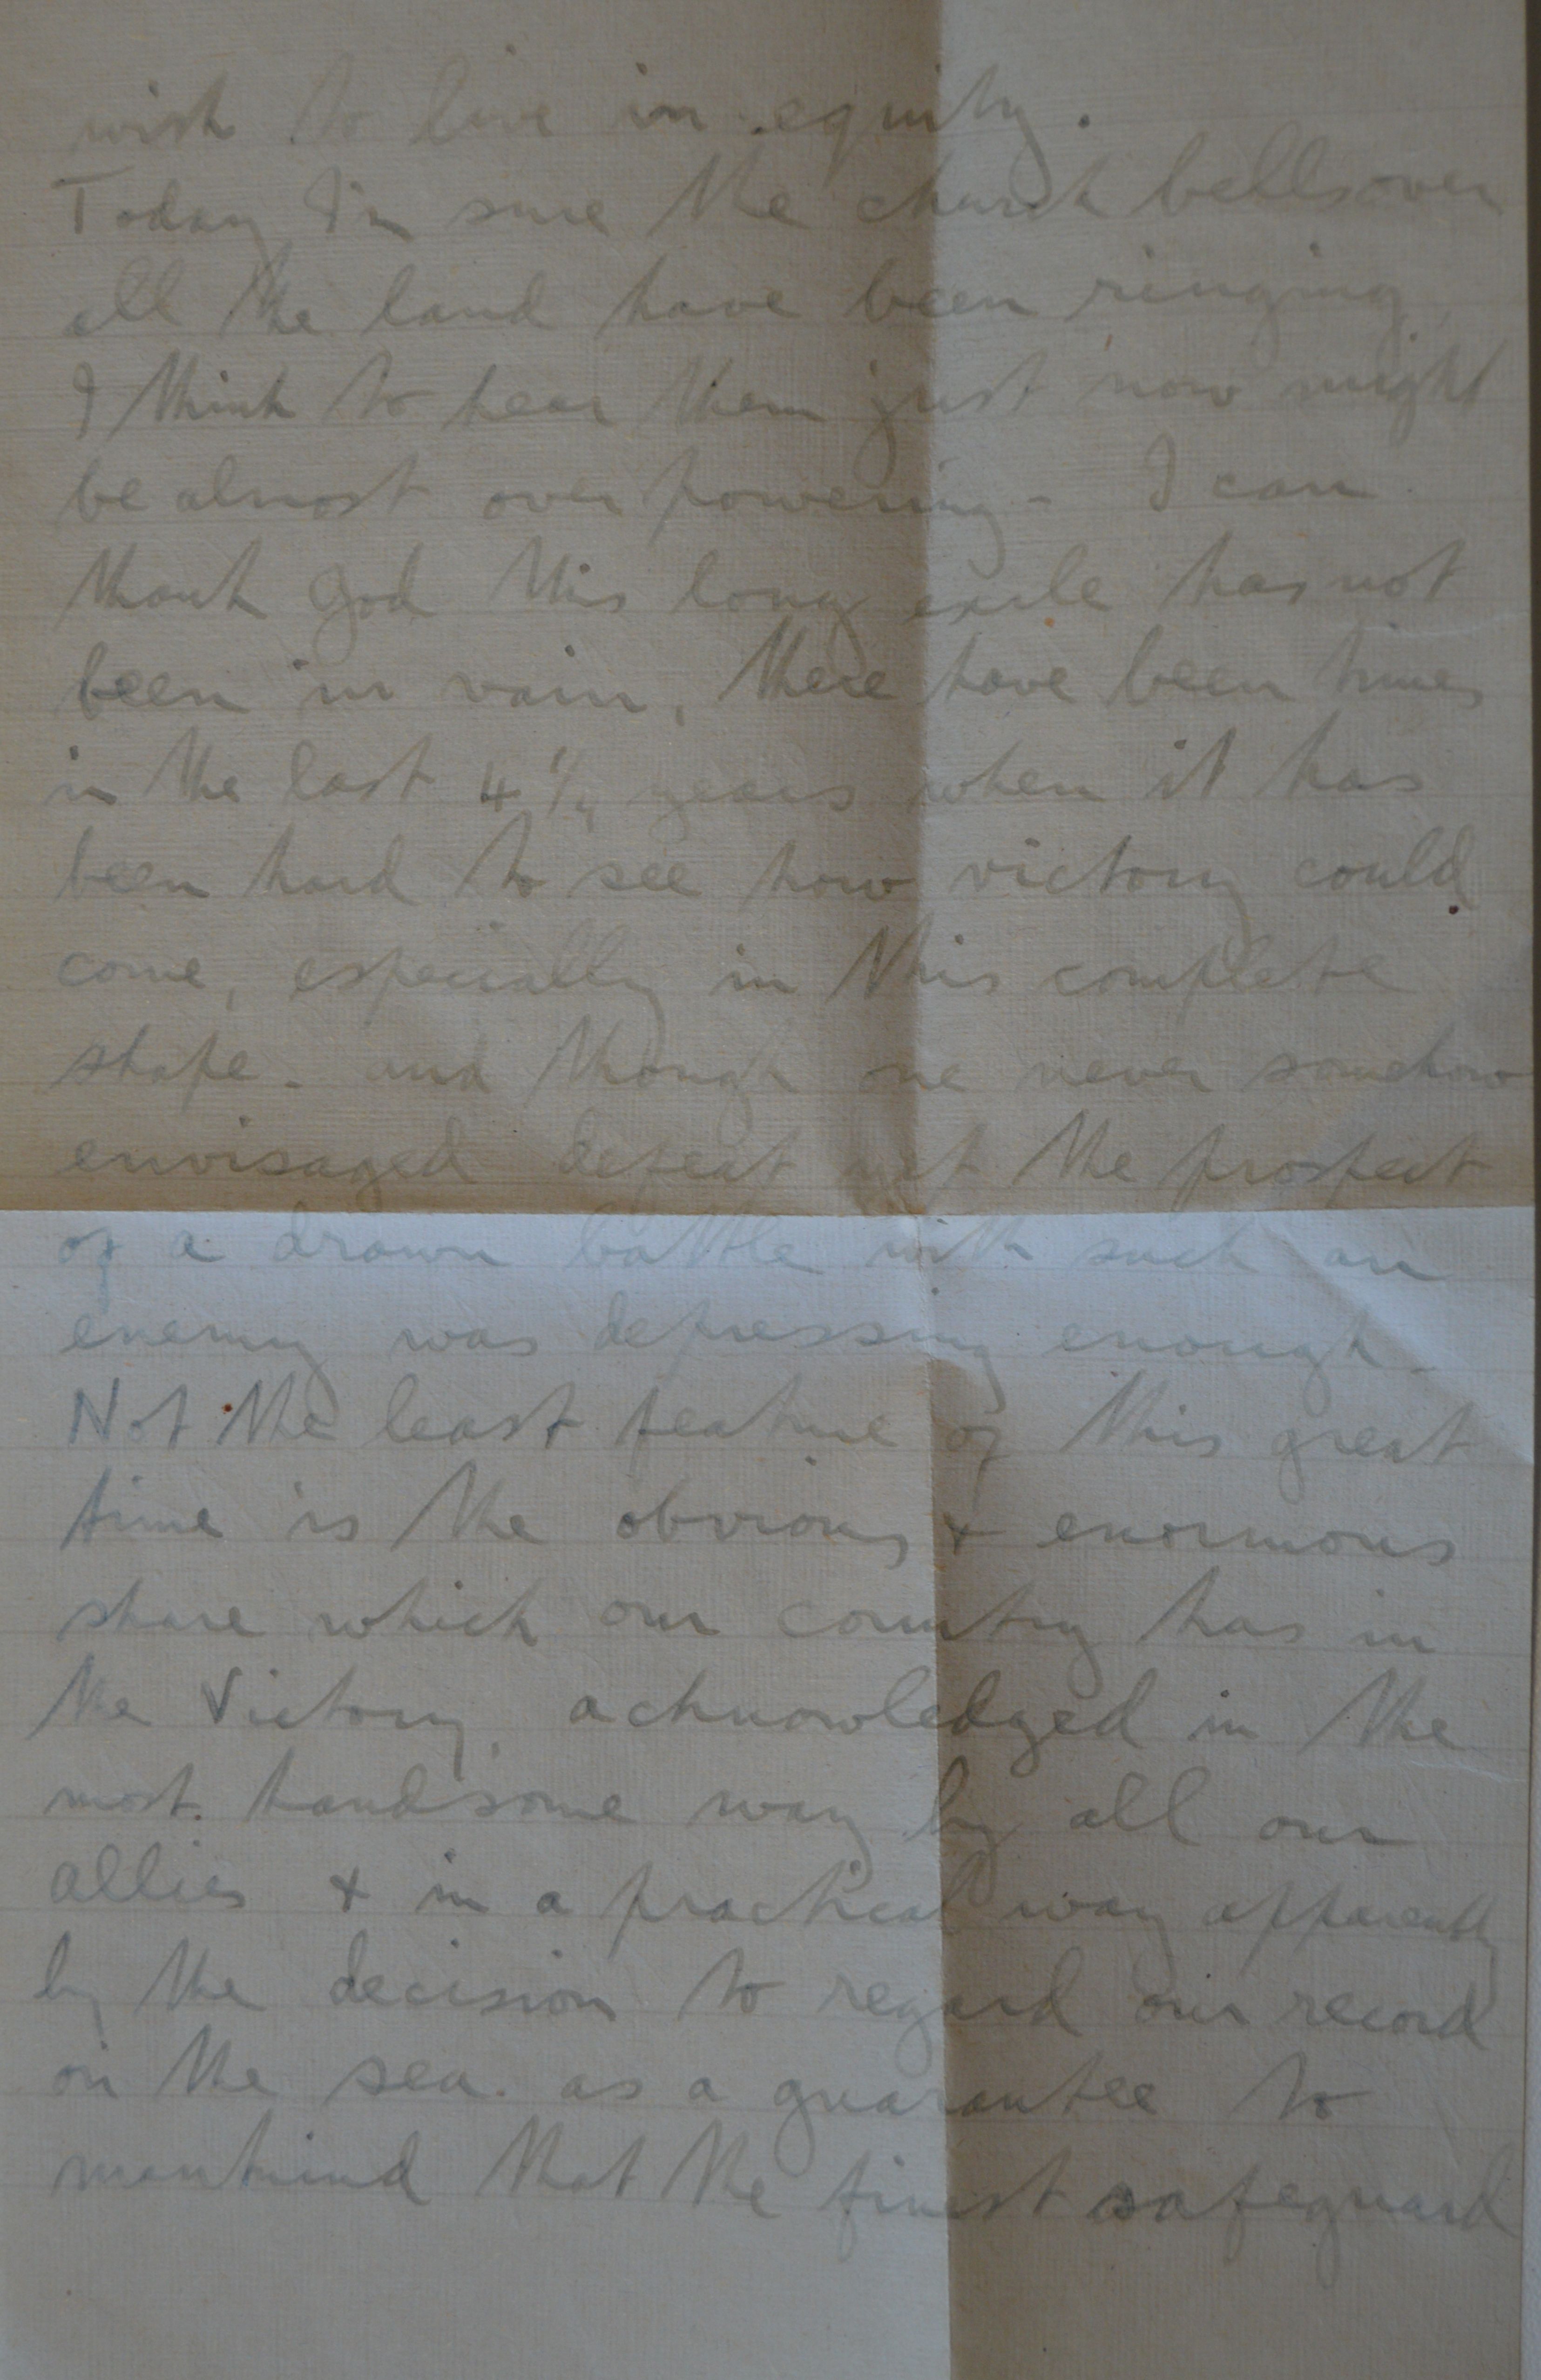 wish to live in equity.
Today I'm sure the church bells over
all the land have been ringing,
I think to hear them just now might
be almost over powering - I can
thank God this long exile has not
been in vain, there have been times
in the last 4 1/4 years when it has
been hard to see how victory could
come, especially in this complete
shape - and though one never somehow
envisaged defeat yet the prospect
of a drawn battle with such an
enemy was depressing enough -
Not the least feature of this great
time is the obvious & enormous
share which our country has in
the Victory, acknowledged in the
most handsome way by all our
allies & in a practical way apparently
by the decision to regard our record
on the sea as a guarantee to
mankind that the finest safeguard